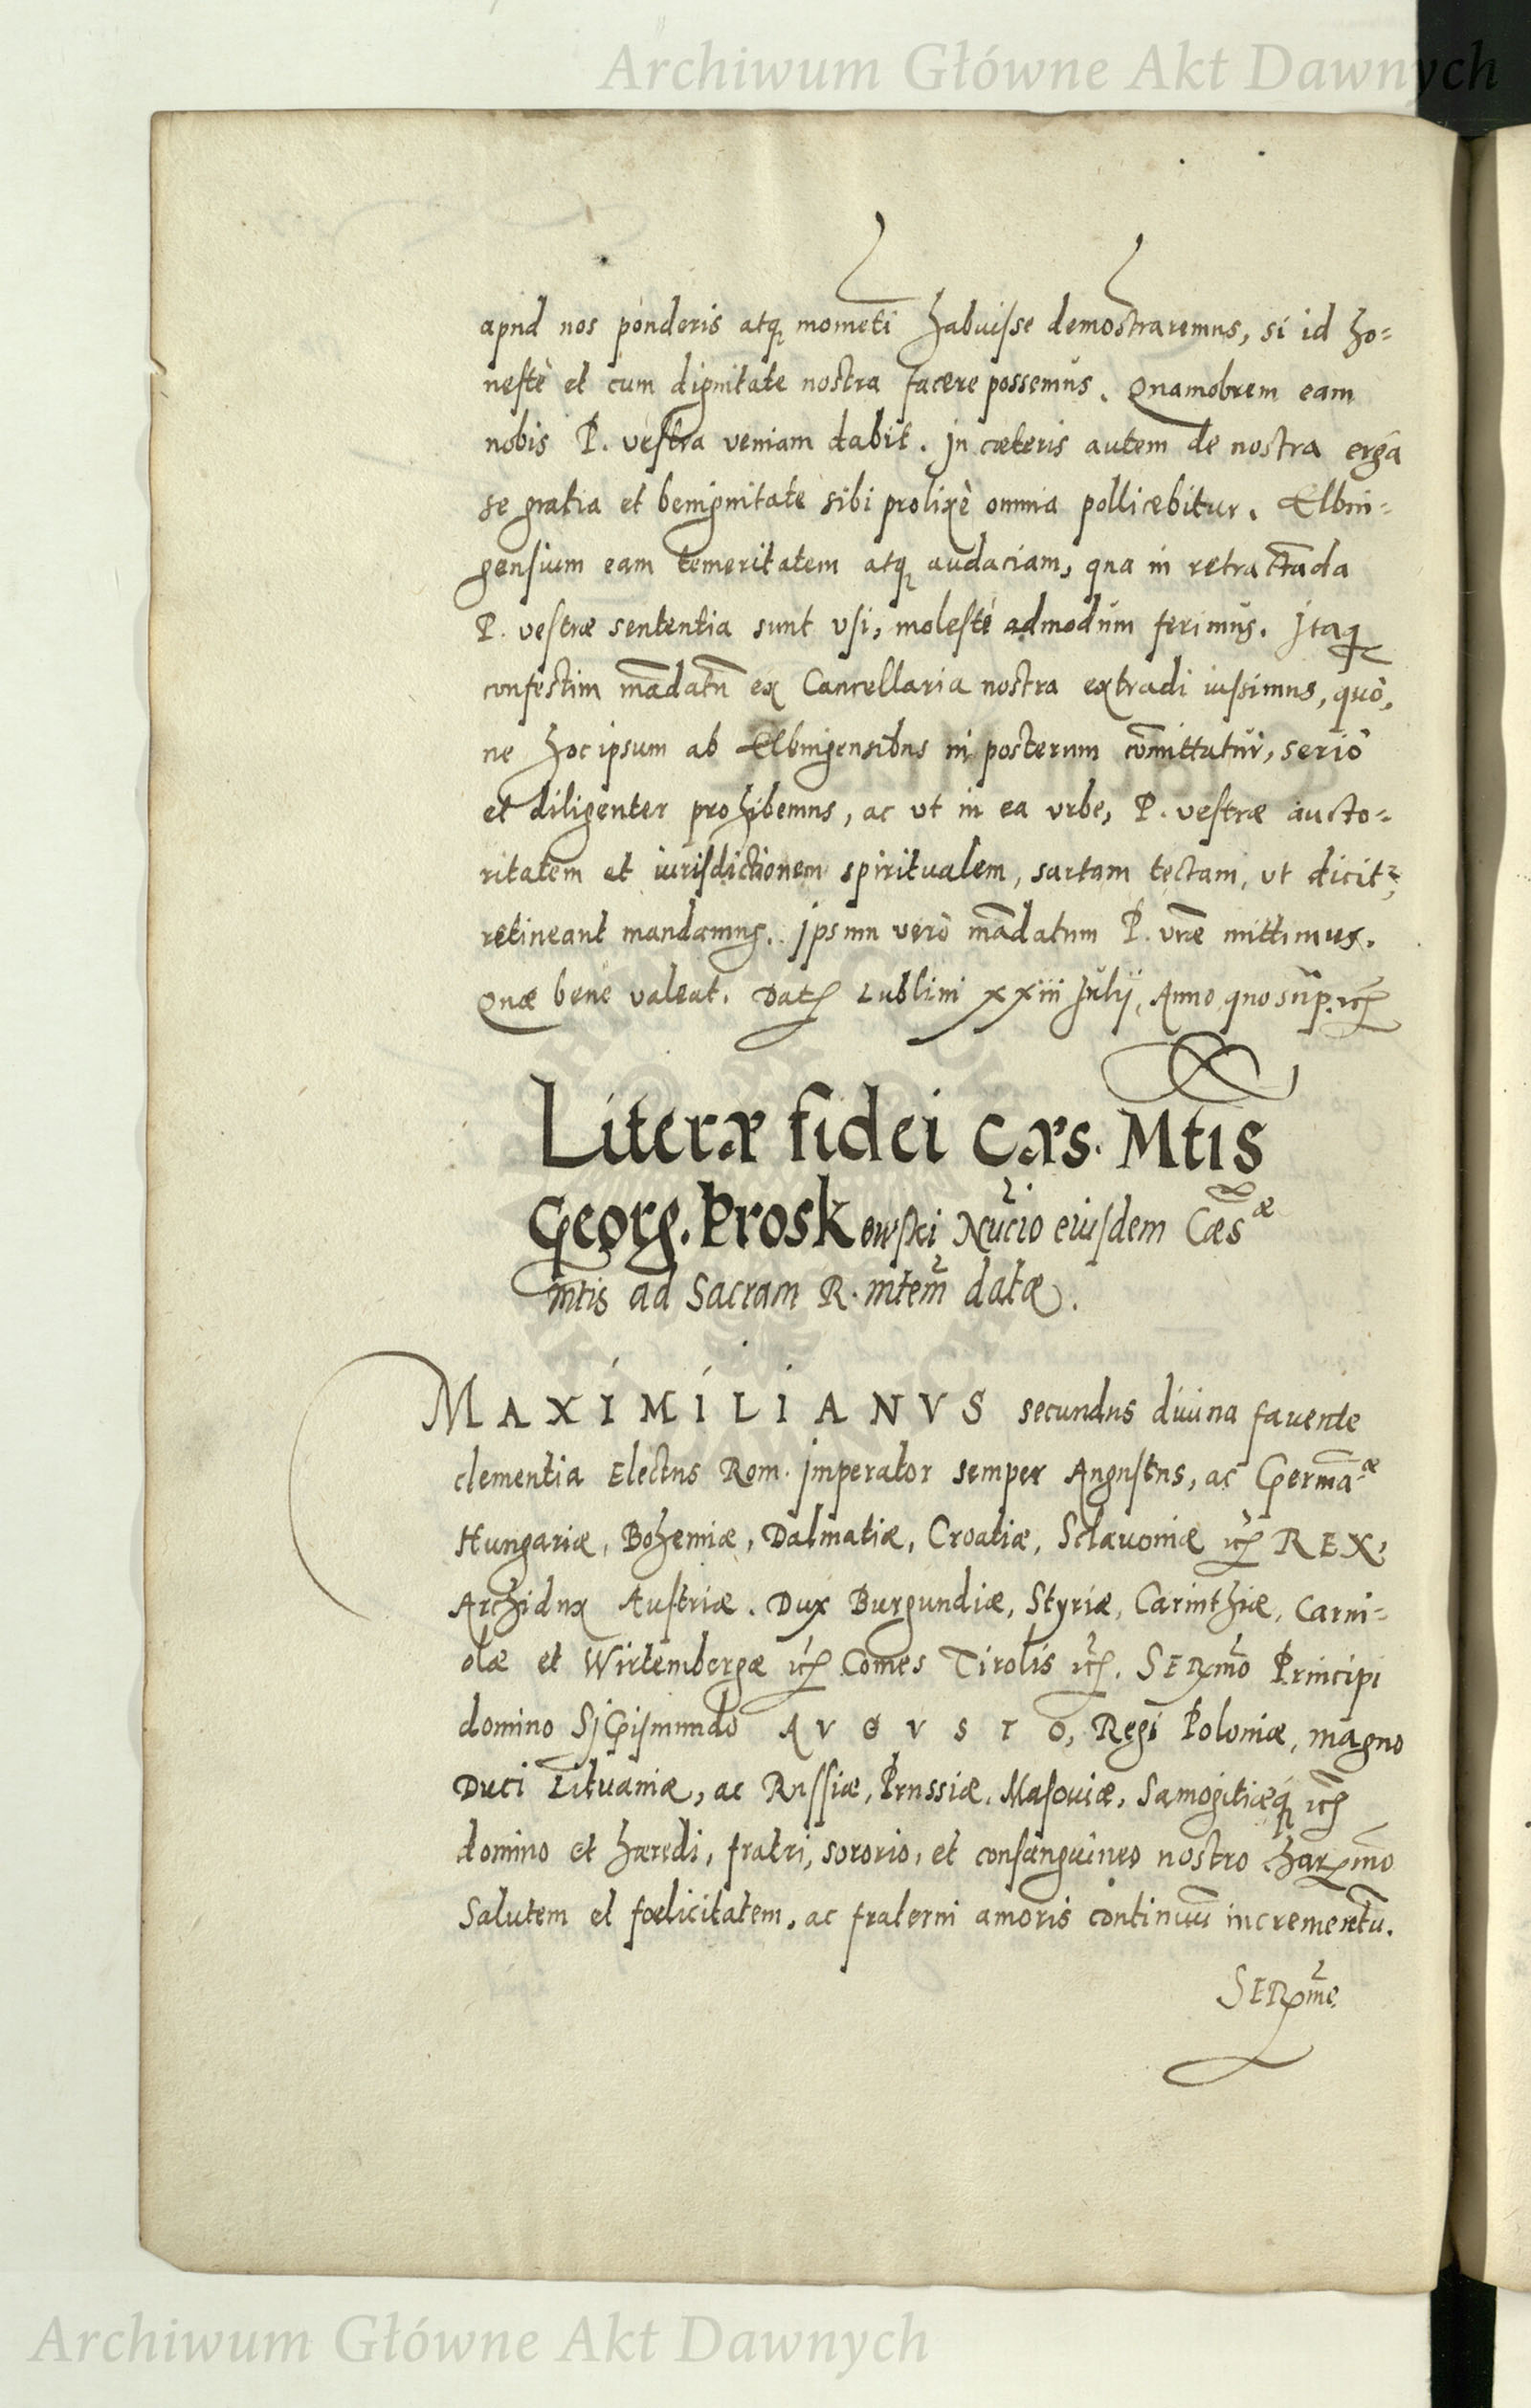 Archiwum Główne Akt Dawnych
apud nos ponderis atq; mometi habuisse demostraremus, si id ho=
nestè et cum dignitate nostra facere possemus. Quamobrem eam
nobis P. vestra veniam dabit. In cæteris autem de nostra erga
se gratia et benignitate sibi prolixè omnia pollicebitur. Elbin=
gensium eam temeritatem atq; audaciam, qua in retractāda
P. vestræ sententia sunt vsi, molestè admodum ferimus. Itaq;
confestim mādatū ex Cancellaria nostra extradi iussimus, quo,
ne hoc ipsum ab Elbingensibus in posterum cōmittatur, serio
et diligenter prohibemus, ac vt in ea vrbe, P. vestræ aucto=
ritatem et iurisdictionem spiritualem, sartam tectam, ut dicit~,
retineant mandamus. Ipsum verò mādatum P. vr̄æ mittimus.
Quæ bene valeat. Dat; Lublini xxiii Julij, Anno quo sup. etc;
Literæ fidei Cæs. Mtis
Georg. Proskowski Nūcio eiusdem Cæs æ
mtis ad Sacram R. mtem datæ.
MAXIMILIANVS secundus diuina fauente
clementia Electus Rom. Imperator semper Augustus, ac Germā.æ
Hungariæ, Bohemiæ, Dalmatiæ, Croatiæ, Sclauoniæ etc; REX,
Archidux Austriæ. Dux Burgundiæ, Styriæ, Carinthiæ, Carni=
olæ et Wirtembergæ etc; Comes Tirolis etc;. SERmo Principi
domino SIGismundo AVGVSTO, Regi Poloniæ, magno
Duci Lituaniæ, ac Russiæ, Prussiæ, Masouiæ, Samogitiæq; etc;
domino et hæredi, fratri, sororio, et consanguineo nostro charmo
Salutem et fœlicitatem, ac fraterni amoris continuū incrementū.
SERme
Archiwum Główne Akt Dawnych